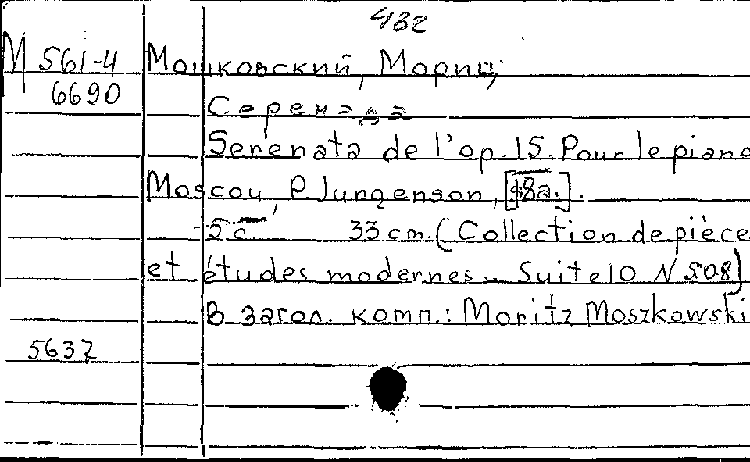 482
М 561-4 Мошковский, Мориц
6690
Серенада
Serenata de l'op.15. Pour le piano
Moscou, P. Jurgenson, [18a.].
5 с 33 cm. (Collection de pièce
et études modernes. Suite 10 N 508)
В загол. комп.: Moritz Moszkowski
5637